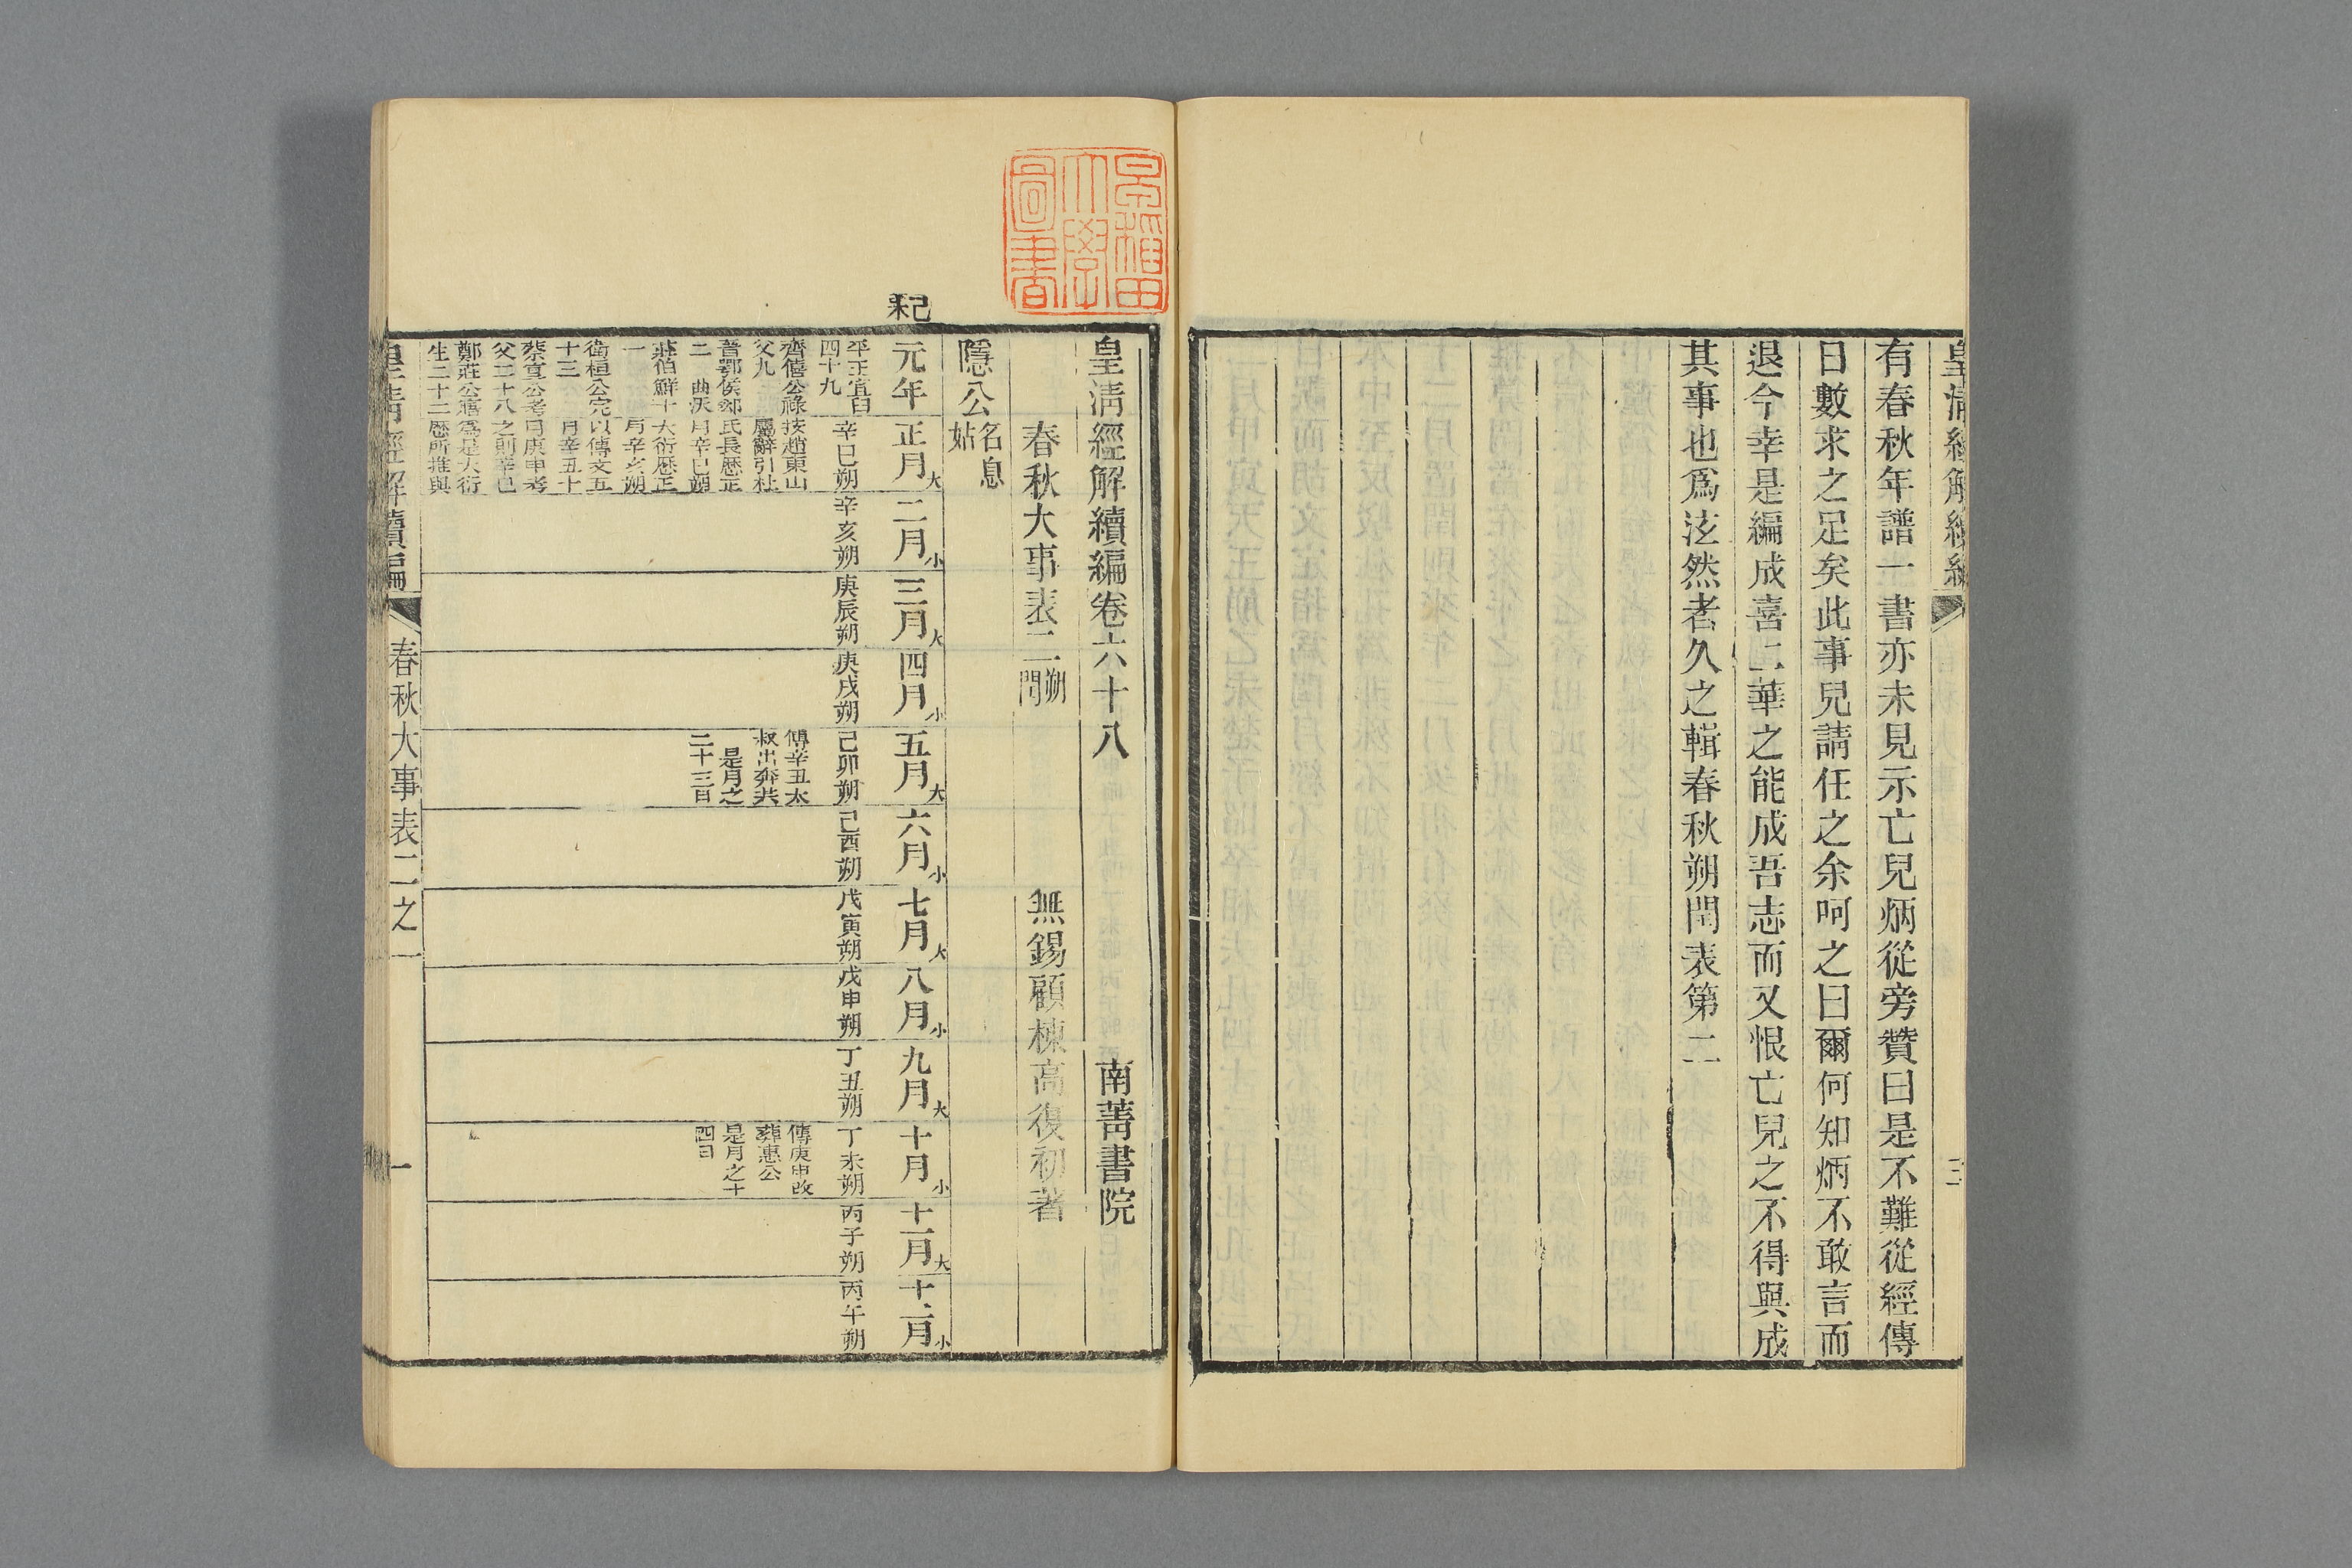 有春秋年譜一書亦未見示亡兒炳從旁贊曰是不難從經傳
日數求之足矣此事兒請任之余呵之曰爾何知炳不敢言而
退今幸是編成喜二華之能成吾志而又恨亡兒之不得與成
其事也爲泫然者久之輯春秋朔閏表第二
三
早稻田大學圖書
皇清經解續編卷六十八
南菁書院
春秋大事表二朔閏
無錫顧棟高復初著
隱公名息姑
己未
元年
平王宜臼
四十九
齊僖公祿
父九
晉鄂侯郄
二 曲沃
莊伯鱓十
一
衛桓公完
十三
蔡宣公考
父二十八
鄭莊公寤
生二十二
正月大
辛巳朔
按趙東山
屬辭引杜
氏長歷正
月辛巳朔
大衍歷正
月辛亥朔
以傳文五
月辛丑十
月庚申考
之則辛巳
爲是大衍
歷所推與
二月小
辛亥朔
三月大
庚辰朔
四月小
庚戌朔
五月大
己卯朔
傳辛丑太
叔出奔共
是月之
二十三日
六月小
己酉朔
七月大
戊寅朔
八月小
戊申朔
九月大
丁丑朔
十月小
丁未朔
傳庚申改
葬惠公
是月之十
四日
十一月大
丙子朔
十二月小
丙午朔
皇清經解續編
春秋大事表二之一
一